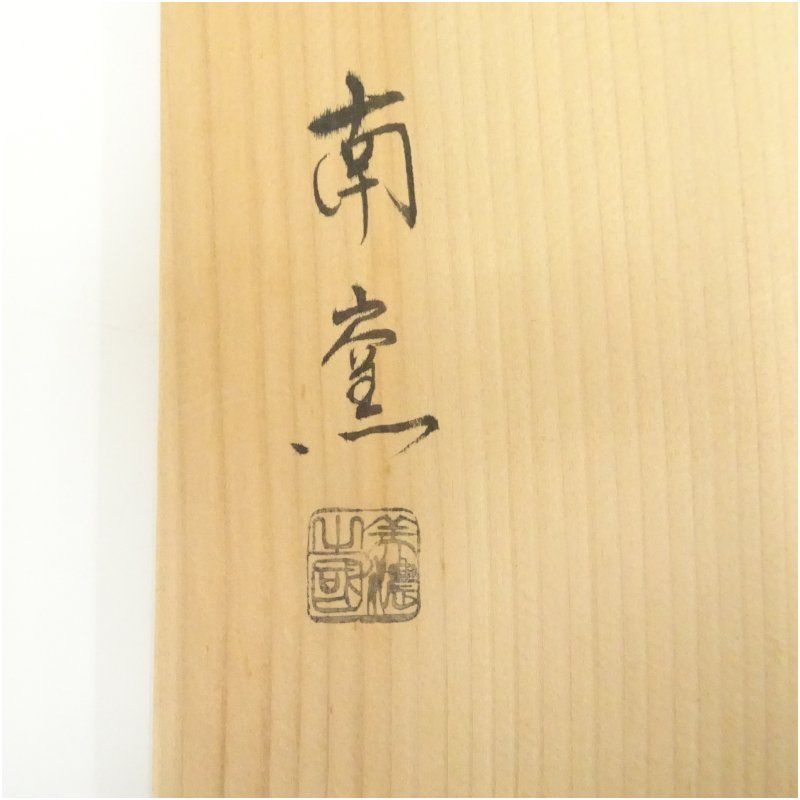 南窯
美濃之國